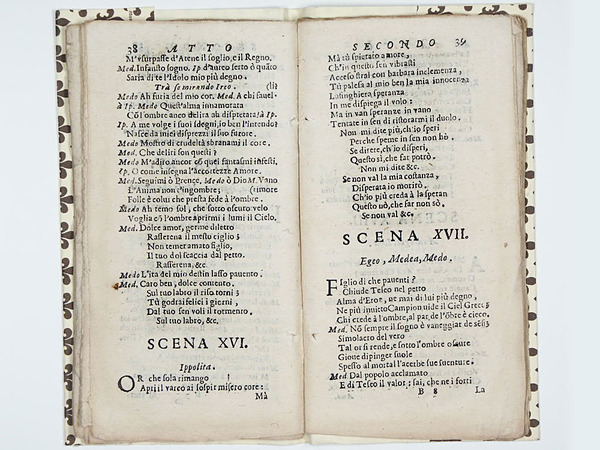 38 ATTO
M'vsurpasse d'Atene il soglio, e il Regno.
Med. Infausto sogno. Ip. d'aureo serto ô quãto
Saria di te l'Idolo mio più degno.
Trà se mirando Ireo.
Medo Ah furia del mio cor. Med. A chi fauel-
à Ip. Medo Quest'alma innamorata (li?
Cõ l'ombre anco delira ah dispietata! à Ip.
Ip. A me volge i suoi sdegni, io ben l'intendo:
Nasce da miei disprezzi il suo furore.
Medo Mostro di crudeltà sbranami il core.
Med. Che deliri son questi?
Medo M'adiro ancor cõ quei fantasmi infesti,
Ip. O come insegna l'accortezze Amore.
Med. Seguimi ò Prence. Medo ò Dio M. Vano
L'Anima non t'ingombre; (timore
Folle è colui che presta fede à l'ombre.
Medo Ah temo sol, che sotto oscuro velo
Voglia cõ l'ombre aprirmi i lumi il Cielo.
Med. Dolce amor, germe diletto
Rasserena il mesto ciglio;
Non temer amato figlio,
Il tuo dol scaccia dal petto.
Rasserena, &c.
Medo L'ita del mio destin lasso pauento.
Med. Caro ben, dolce contento,
Sul tuo labro il riso torni;
Tù godrai felici i giorni,
Dal tuo sen voli il tormento.
Sul tuo labro, &c.
SCENA XVI.
Ippolita.
OR che sola rimango
Apri il varco ai sospir misero core:
Mà
SECONDO 39
Mà tù spietato amore,
Ch'in questo sen vibrasti
Acceso stral con barbara inclemenza,
Tù palesa al mio ben la mia innocenza
Lusinghiera speranza
In me dispiega il volo:
Ma in van speranze in vano
Tentate in sen di ristorarmi il duolo.
Non mi dite più, ch'io speri
Perche speme in sen non hò.
Se direte, ch'io disperi,
Questo sì, che far potrò.
Non mi dite &c.
Se non val la mia costanza,
Disperata io morirò.
Ch'io più creda à la speran
Questo nò, che far non sò.
Se non val &c.
SCENA XVII.
Egeo, Medea, Medo.
Figlio di che pauenti?
Chiude Teseo nel petto
Alma d'Eroe, ne mai di lui più degno,
Ne più inuitto Campion vide il Ciel Greco;
Chi crede à l'ombre, al par de l'õbre è cieco.
Med. Nõ sempre il sogno è vaneggiar de sensi
Simolacro del vero
Tal or si rende, e sotto l'ombre oscure
Gioue dipinger suole
Spesso al mortal l'acerbe sue suenture.
Med. Dal popolo acclamato
E di Teseo il valor: sai, che ne i forti
B 8 La